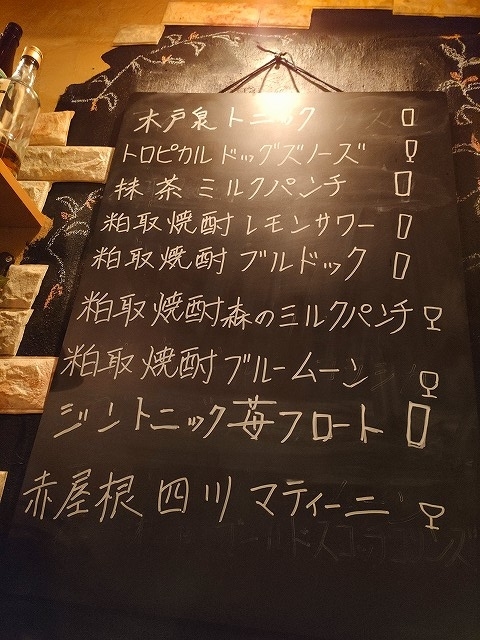 木戸泉トニック
トロピカルドッグズノーズ
抹茶ミルクパンチ
粕取焼酎レモンサワー
粕取焼酎ブルドック
粕取焼酎森のミルクパンチ
粕取焼酎ブルームーン
ジントニック苺フロート
赤屋根四川マティーニ